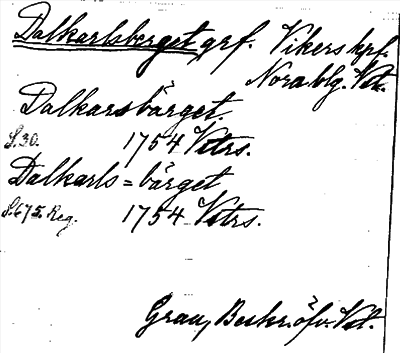 Dalkarlsberget, grf. Vikers kpf.
Nora blg. Vst.
Dalkarsbärget.
S. 30. 1754 Vstrs.
Dalkarls=bärget
S. 675. Reg. 1754 Vstrs.
Grau, Beskr. öfv. Vst.